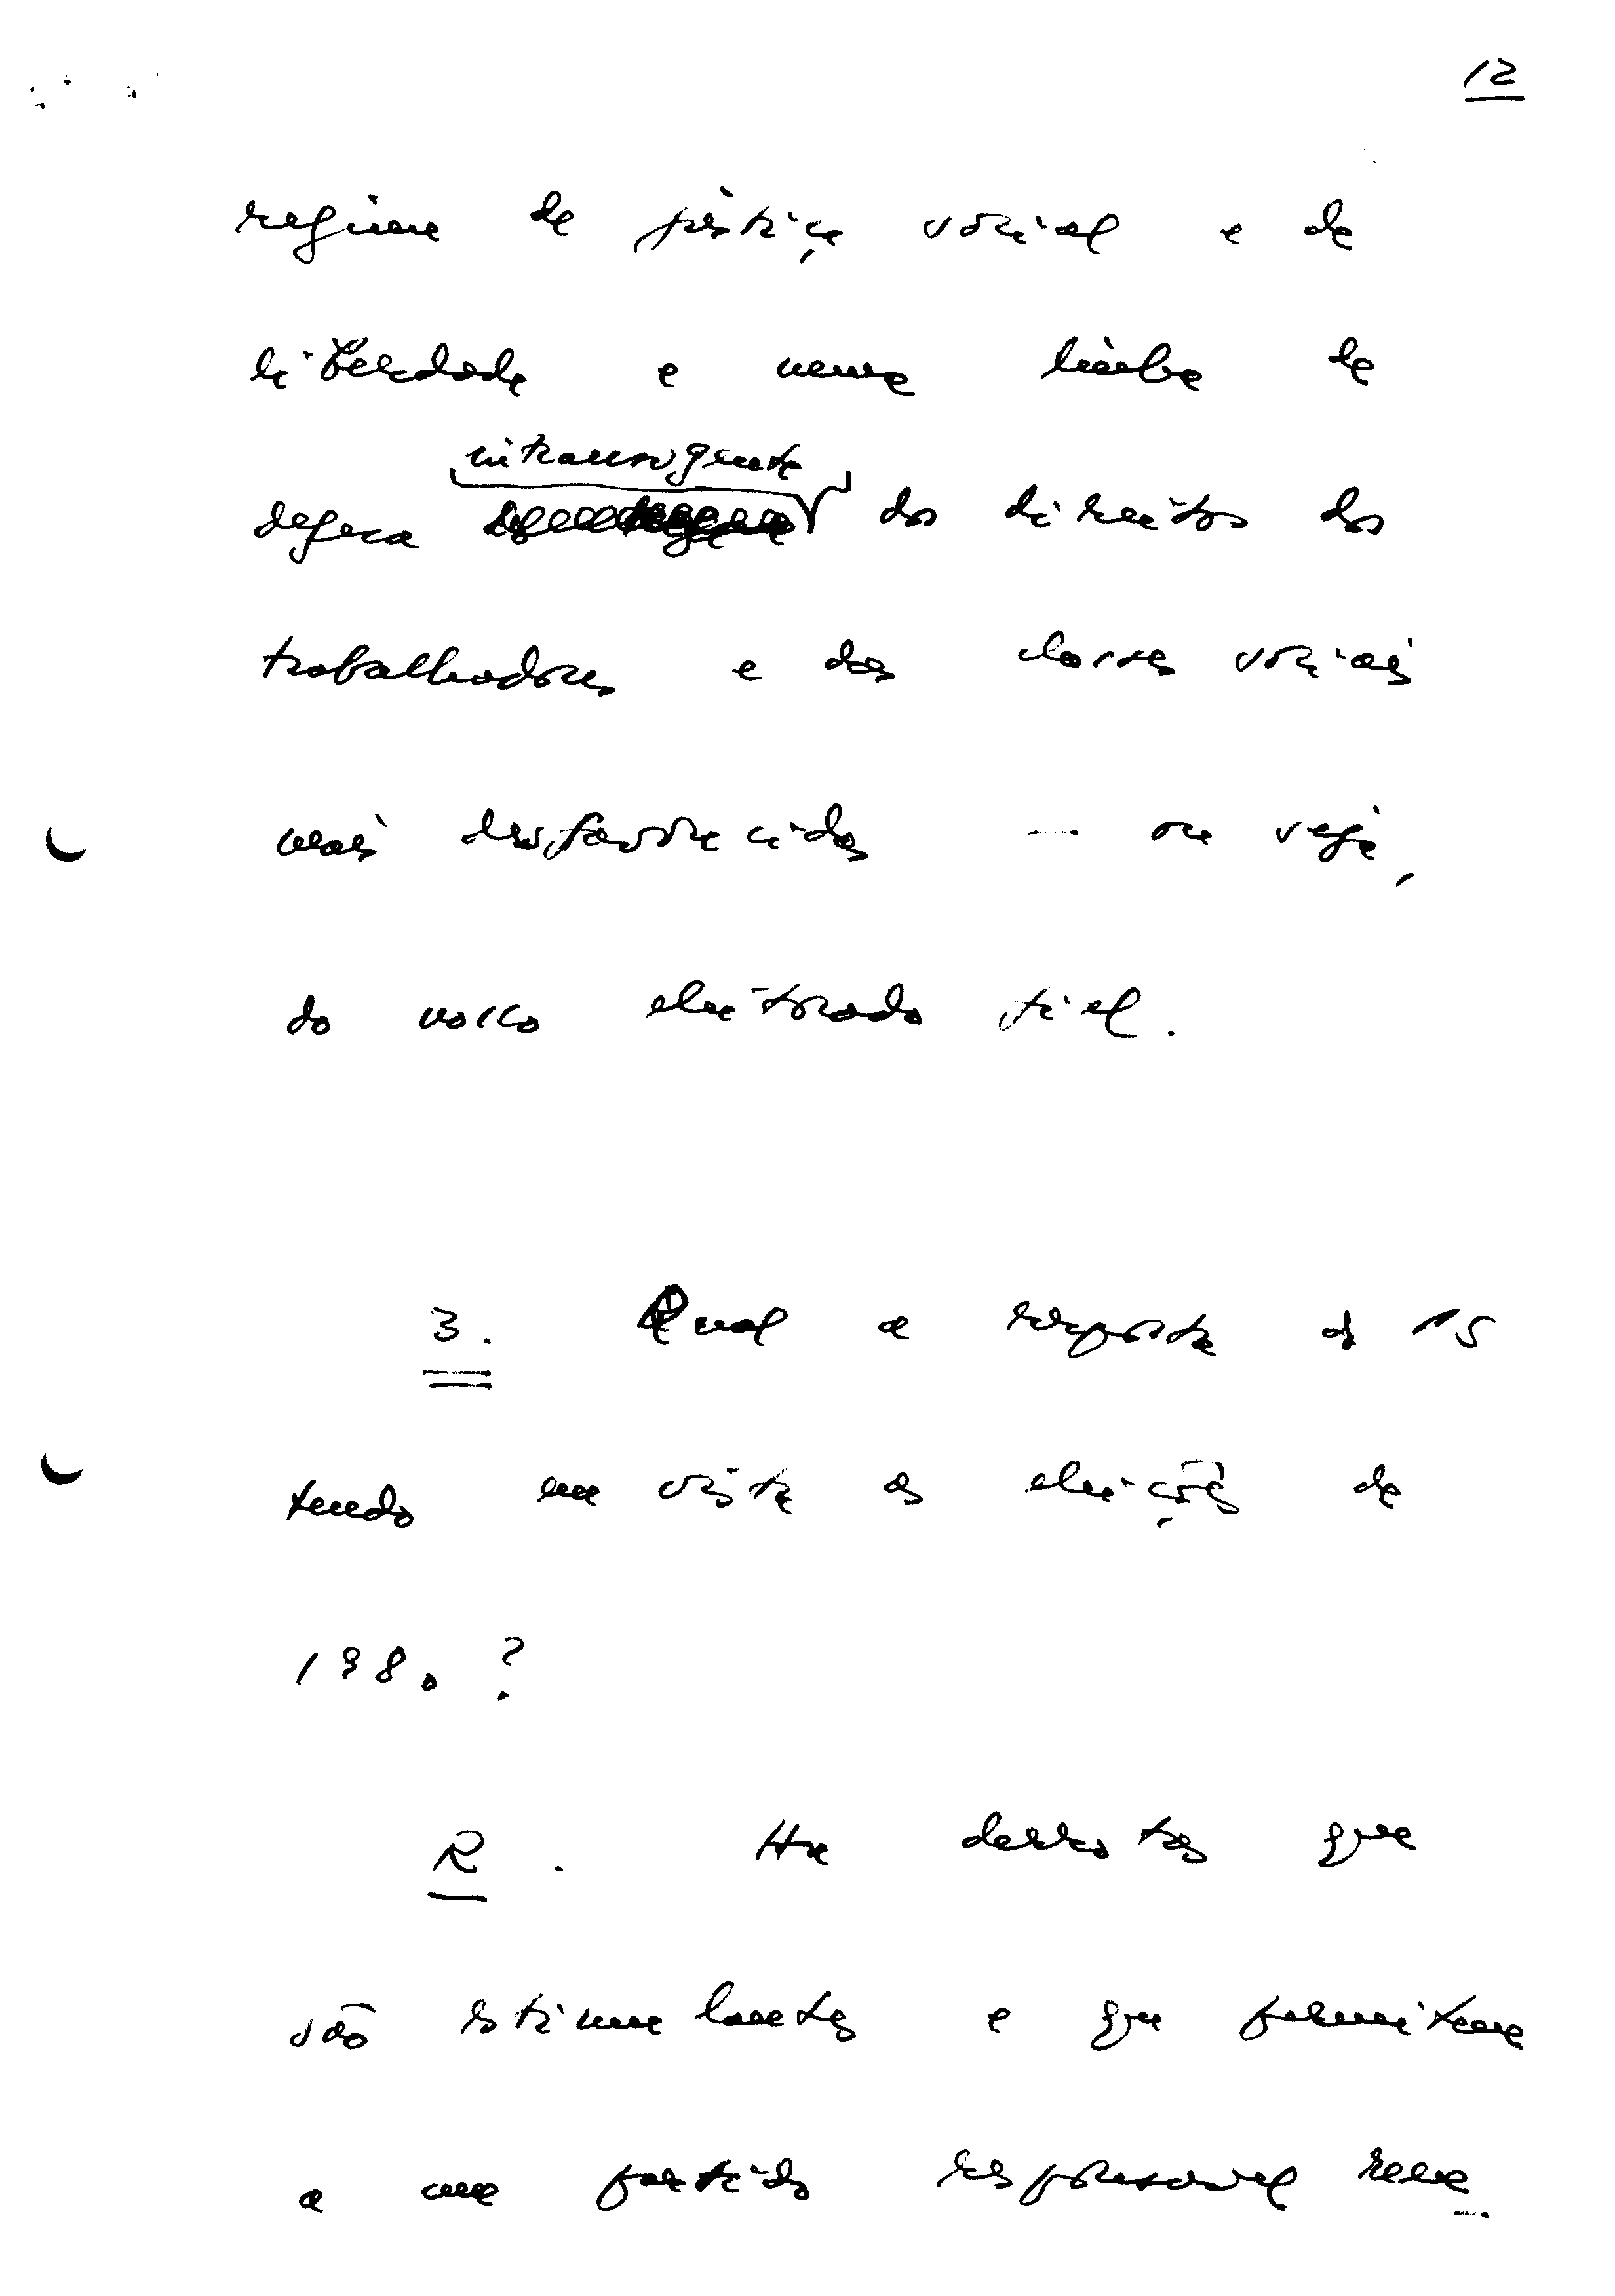 12
regime de justiça social e de
liberdade e numa linha de
intransigente
defesa dos direitos dos
trabalhadores e das classes sociais
mais desfavorecidas — ou seja,
do nosso eleitorado fiel.
3. Qual a resposta do PS
tendo em vista as eleições de
1980?
R. Há derrotas que
são estimulantes e que permitem
a um partido responsável